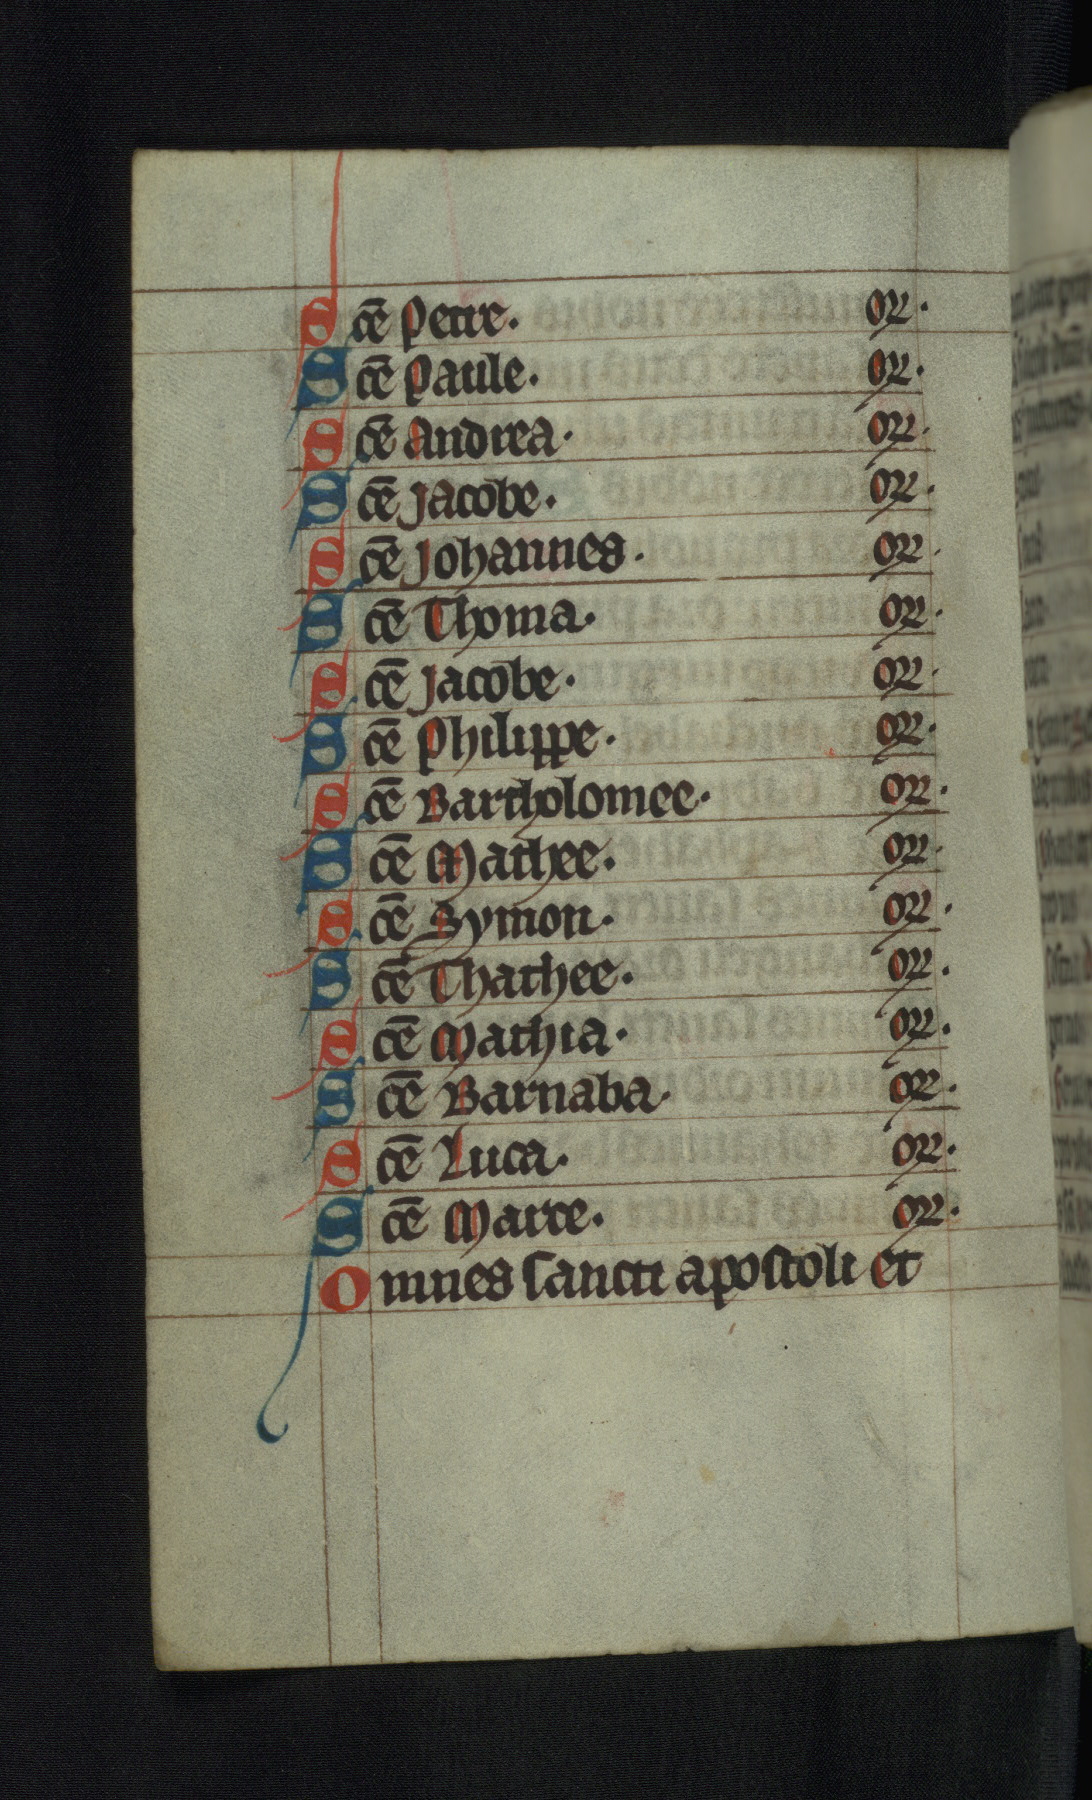 Sc̄e Petre. or.
Sc̄e Paule. or.
Sc̄e Andrea. or.
Sc̄e Jacobe. or.
Sc̄e Johannes. or.
Sc̄e Thoma. or.
Sc̄e Jacobe. or.
Sc̄e Philippe. or.
Sc̄e Bartholomee. or.
Sc̄e Mathee. or.
Sc̄e Symon. or.
Sc̄e Thathee. or.
Sc̄e Mathia. or.
Sc̄e Barnaba. or.
Sc̄e Luca. or.
Sc̄e Marce. or.
Omnes sancti apostoli et